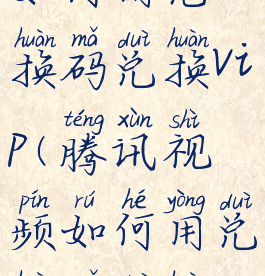 huàn mǎ duì huàn
换码兑换Vi
téng xùn shì
P(腾讯视
pín rú hé yòng duì
频如何用兑